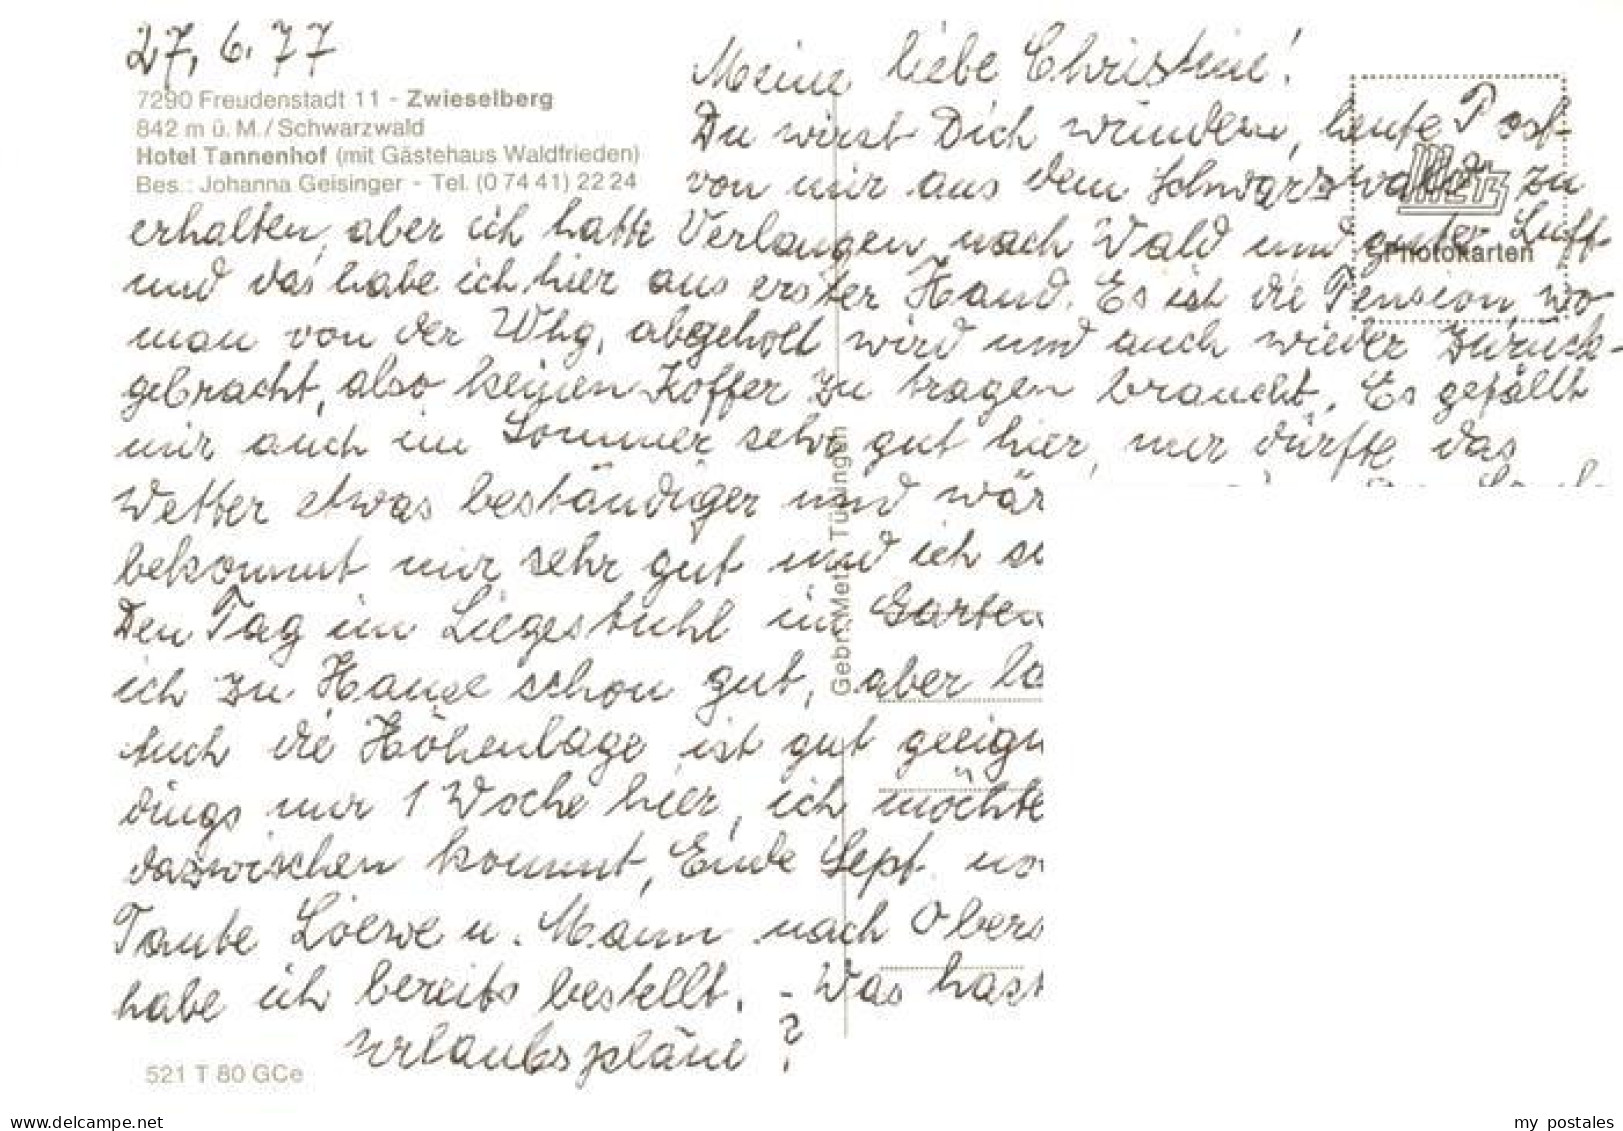 27. 6. 77
7290 Freudenstadt 11 - Zwieselberg
842 m ü. M./Schwarzwald
Hotel Tannenhof (mit Gästehaus Waldfrieden)
Bes.: Johanna Geisinger - Tel. (0 74 41) 22 24
Meine liebe Christine!
Du wirst Dich wundern, heute Post
von mir aus dem Schwarzwald zu
erhalten, aber ich hatte Verlangen nach Wald und guter Luft
und das habe ich hier aus erster Hand. Es ist die Pension, wo
man von der Whg. abgeholt wird und auch wieder zurück-
gebracht, also keinen Koffer zu tragen braucht. Es gefällt
mir auch im Sommer sehr gut hier, nur dürfte das
Wetter etwas beständiger und wär
bekommt mir sehr gut und ich
Den Tag im Liegestuhl im Garten
ich zu Hause schon gut, aber
Auch die Höhenlage ist gut geeign
dings nur 1 Woche hier, ich möchte
dazwischen kommt, Ende Sept.
Tante Loewe u. Mann nach Obers
habe ich bereits bestellt. - Was hast
Urlaubspläne?
METZ
Photokarten
Gebr. Metz Tübingen
521 T 80 GCe
delcampe.net
my_postales